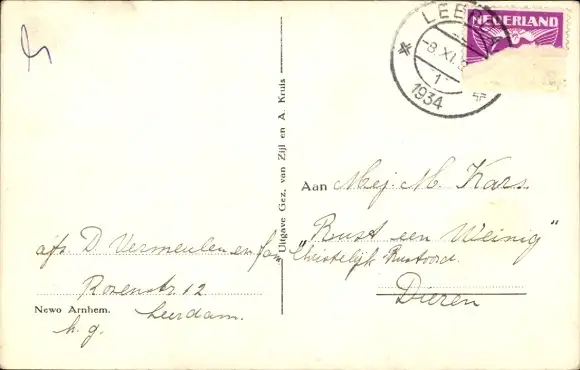 LEERDAM
NEDERLAND
-8.XI.
1
1934
Uitgave Gez. van Zijl en A. Kruls
Aan Mej. M. Kars.
"Rust een Weinig"
Christelijk Rustoord.
Dieren
afz D. Vermeulen en fam
Rozenstr 12
Leerdam.
Newo Arnhem.
h. g.